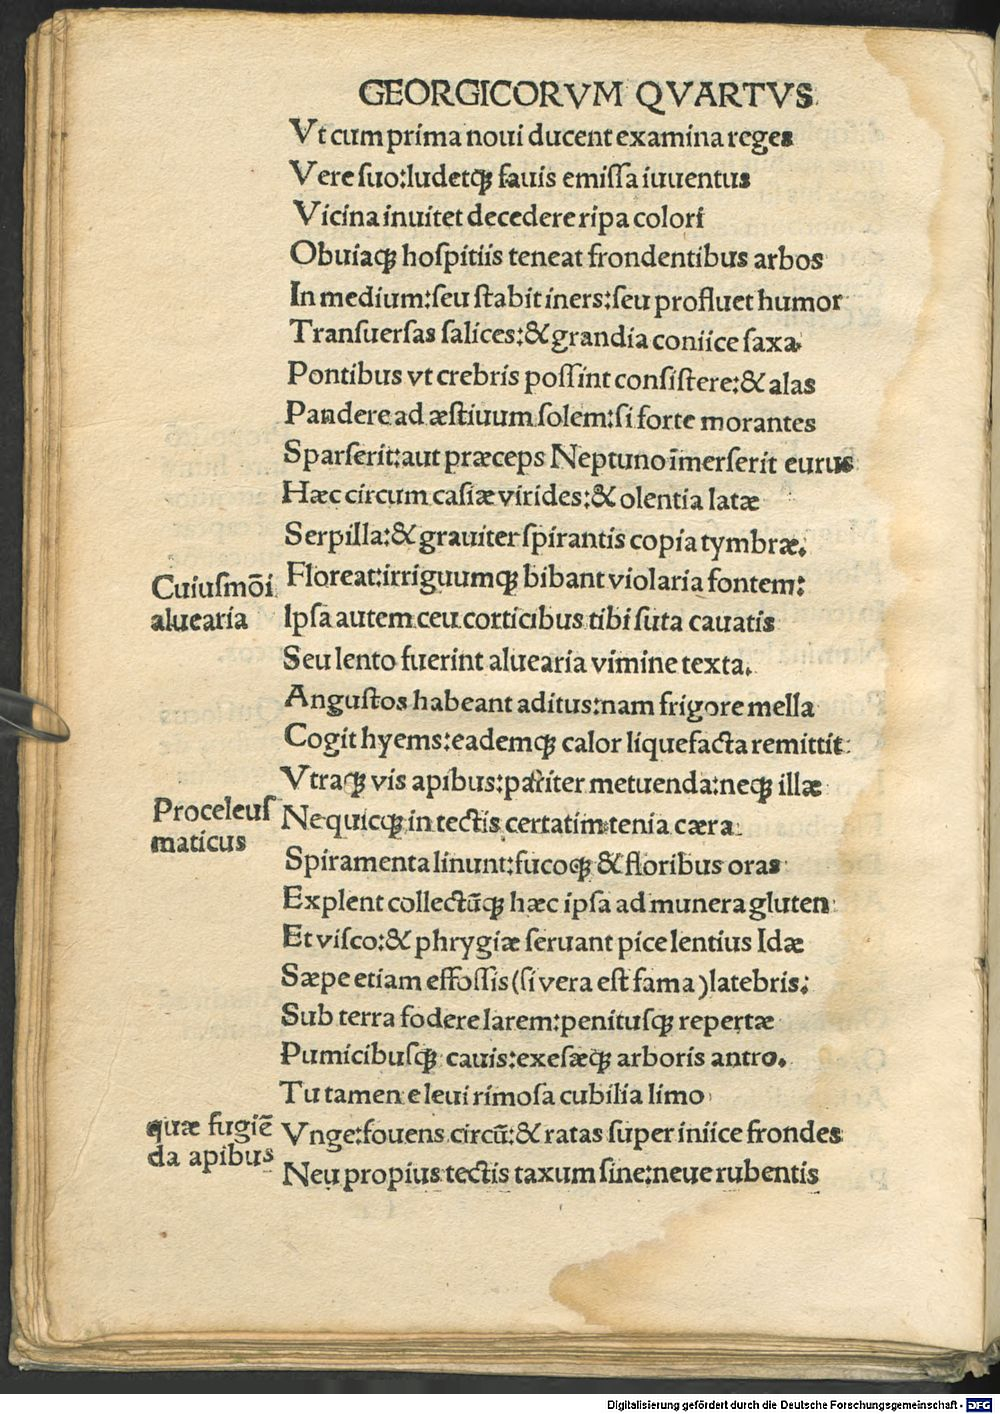 GEORGICORVM QVARTVS
Vt cum prima noui ducent examina reges
Vere ſuo:ludetqꝫ fauis emiſſa iuuentus
Vicina inuitet decedere ripa colori
Obuiaqꝫ hoſpitiis teneat frondentibus arbos
In medium:ſeu ſtabit iners:ſeu profluet humor
Tranſuerſas ſalices:& grandia coniice ſaxa.
Pontibus vt crebris poſſint conſiſtere:& alas
Pandere ad æſtiuum ſolem:ſi forte morantes
Sparſerit:aut præceps Neptuno īmerſerit eurus
Hæc circum caſiæ virides:& olentia latæ
Serpilla:& grauiter ſpirantis copia tymbræ.
Floreat:irriguumqꝫ bibant violaria fontem:
Cuiuſmōi
aluearia
Ipſa autem ceu corticibus tibi ſuta cauatis
Seu lento fuerint aluearia vimine texta.
Anguſtos habeant aditus:nam frigore mella
Cogit hyems:eademqꝫ calor liquefacta remittit:
Vtraqꝫ vis apibus:pariter metuenda:neqꝫ illæ
Proceleuſ
maticus
Nequicqꝫ in tectis certatim tenia cæra
Spiramenta linunt:fucoqꝫ & floribus oras
Explent collectūqꝫ hæc ipſa ad munera gluten
Et viſco:& phrygiæ ſeruant pice lentius Idæ
Sæpe etiam effoſſis (ſi vera eſt fama) latebris:
Sub terra fodere larem:penituſqꝫ repertæ
Pumicibuſqꝫ cauis:exeſæqꝫ arboris antro.
Tu tamen e leui rimoſa cubilia limo
quæ fugiē
da apibus
Vnge:fouens circū:& ratas ſuper iniice frondes
Neu propius tectis taxum ſine:neue rubentis
Digitalisierung gefördert durch die Deutsche Forschungsgemeinschaft - DFG